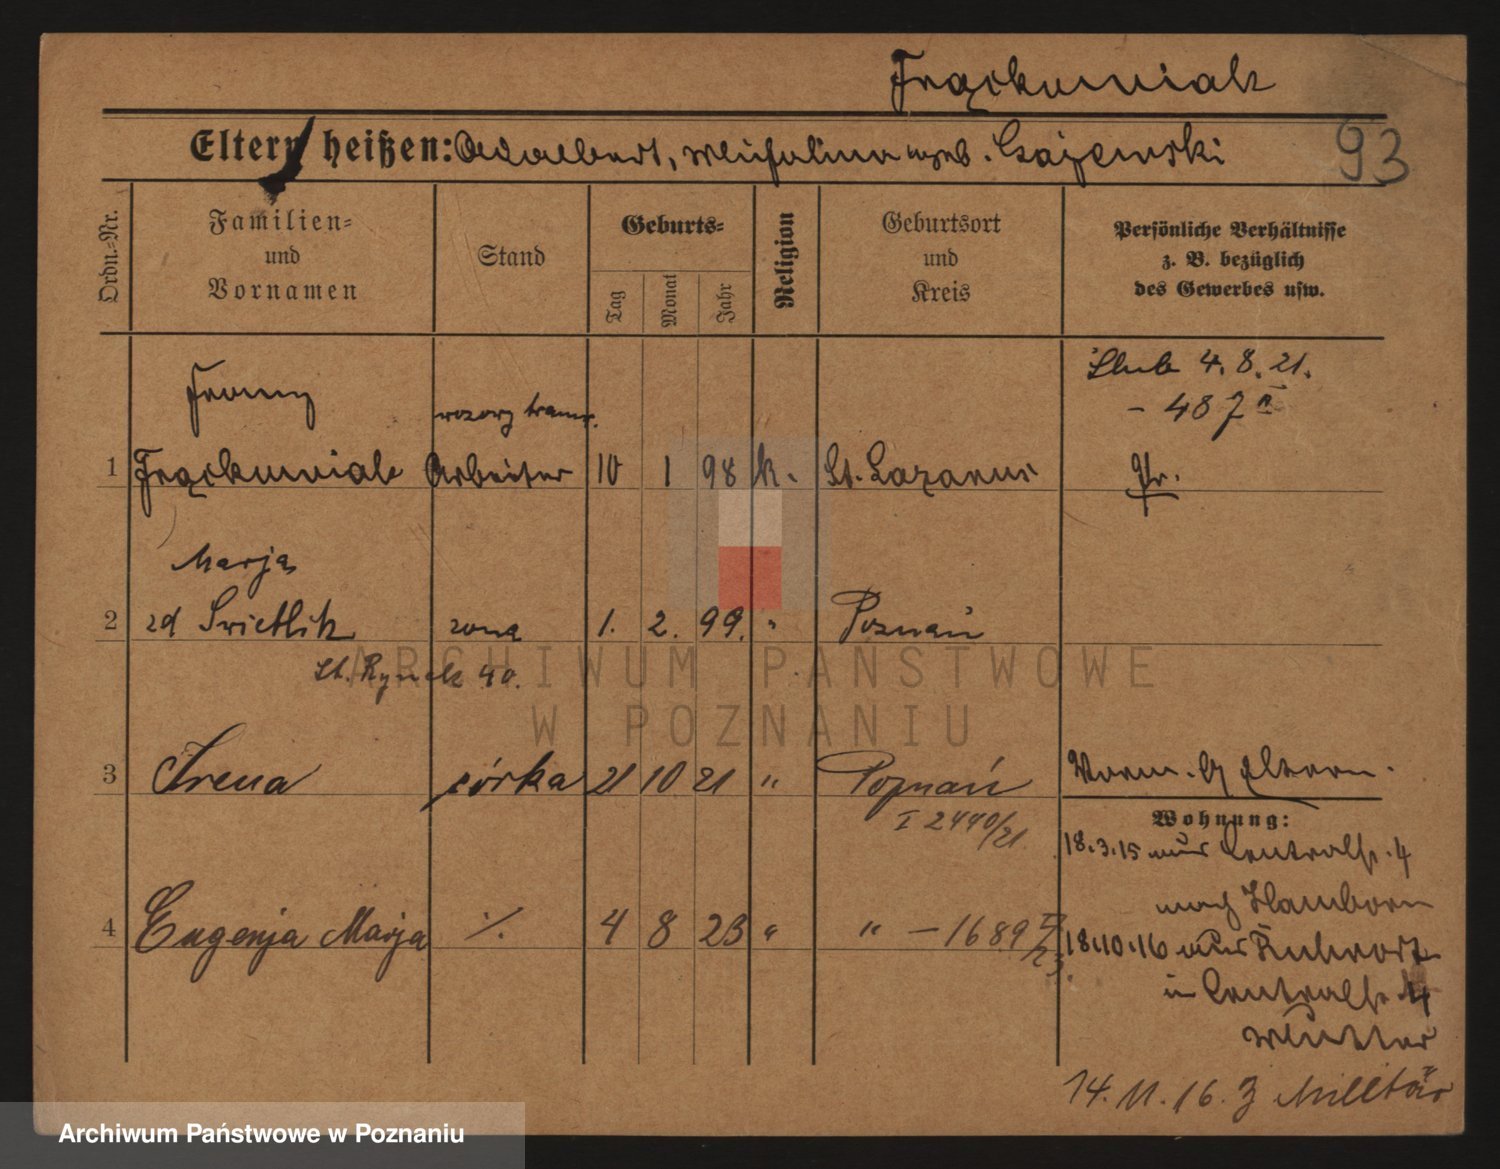 Frąckowiak
Eltern heißen: Adalbert, Michalina geb. Gajewski
93
Ordn.-Nr.
Familien-
und
Vornamen
Stand
Geburts-
Tag
Monat
Jahr
Religion
Geburtsort
und
Kreis
Persönliche Verhältnisse
z. B. bezüglich
des Gewerbes usw.
Ślub 4. 8. 21.
- 487 II
Franz
tramw.
1 Frąckowiak Arbeiter 10 1 98 k. St. Lazarus Pr.
Marja
2 zd Świetlik żona 1. 2. 99. " Poznań
St. Rynek 40.
3 Irena córka 21 10 21 " Poznań Vorm.
I 2440/21.
Wohnung:
18.3.15 aus Centralstr. 4
nach Hamborn
4 Eugenja Marja ·/. 4 8 23 " " - 1689
18.10.16 aus Ruhrort
in Centralstr. 4
Mutter
14. 11. 16. z Militär
ARCHIWUM PAŃSTWOWE
W POZNANIU
Archiwum Państwowe w Poznaniu